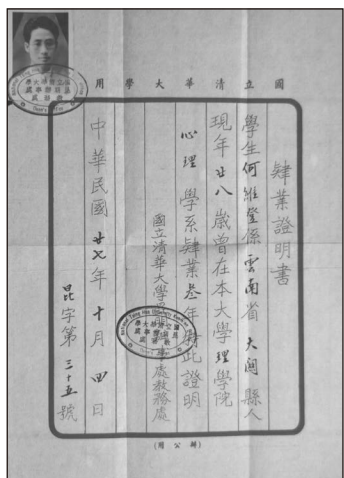 國立清華大學用
肄業證明書
學生何維登係雲南省大關縣人
現年廿八歲曾在本大學理學院
心理學系肄業叁年特此證明
國立清華大學昆明辦事處教務處
中華民國廿七年十月四日
昆字第三十五號
(辦公用)